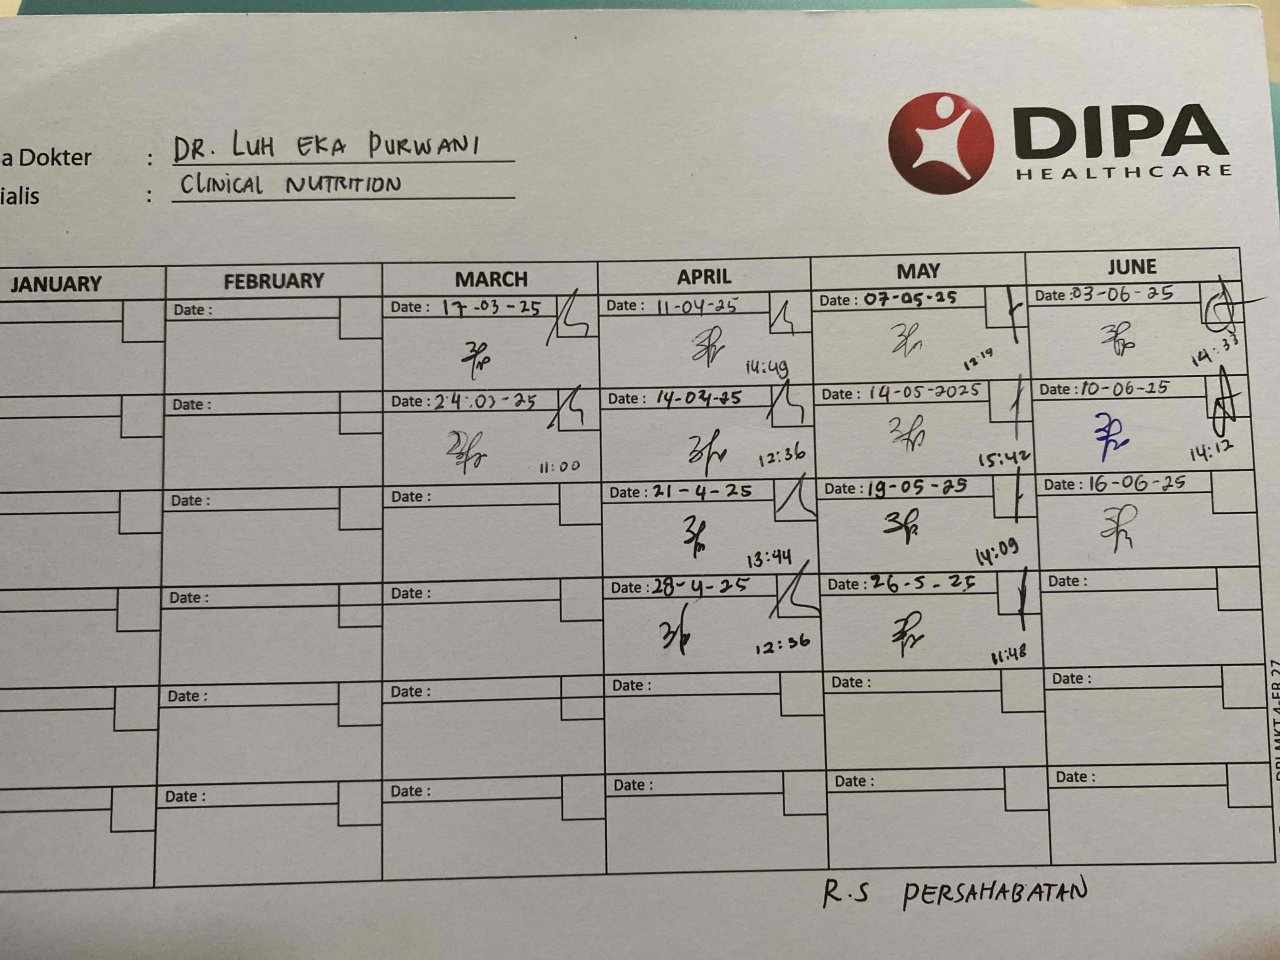 DIPA
HEALTHCARE
a Dokter : DR. LUH EKA PURWANI
ialis : CLINICAL NUTRITION
JANUARY FEBRUARY MARCH APRIL MAY JUNE
Date : Date : 17-03-25 Date : 11-04-25 Date : 07-05-25 Date : 03-06-25
14:49 12:19 14:33
Date : Date : 24-03-25 Date : 14-04-25 Date : 14-05-2025 Date : 10-06-25
11:00 12:36 15:42 14:12
Date : Date : Date : 21-4-25 Date : 19-05-25 Date : 16-06-25
13:44 14:09
Date : Date : Date : 28-4-25 Date : 26-5-25 Date :
12:36 11:48
Date : Date : Date : Date : Date :
Date : Date : Date : Date : Date :
R.S PERSAHABATAN